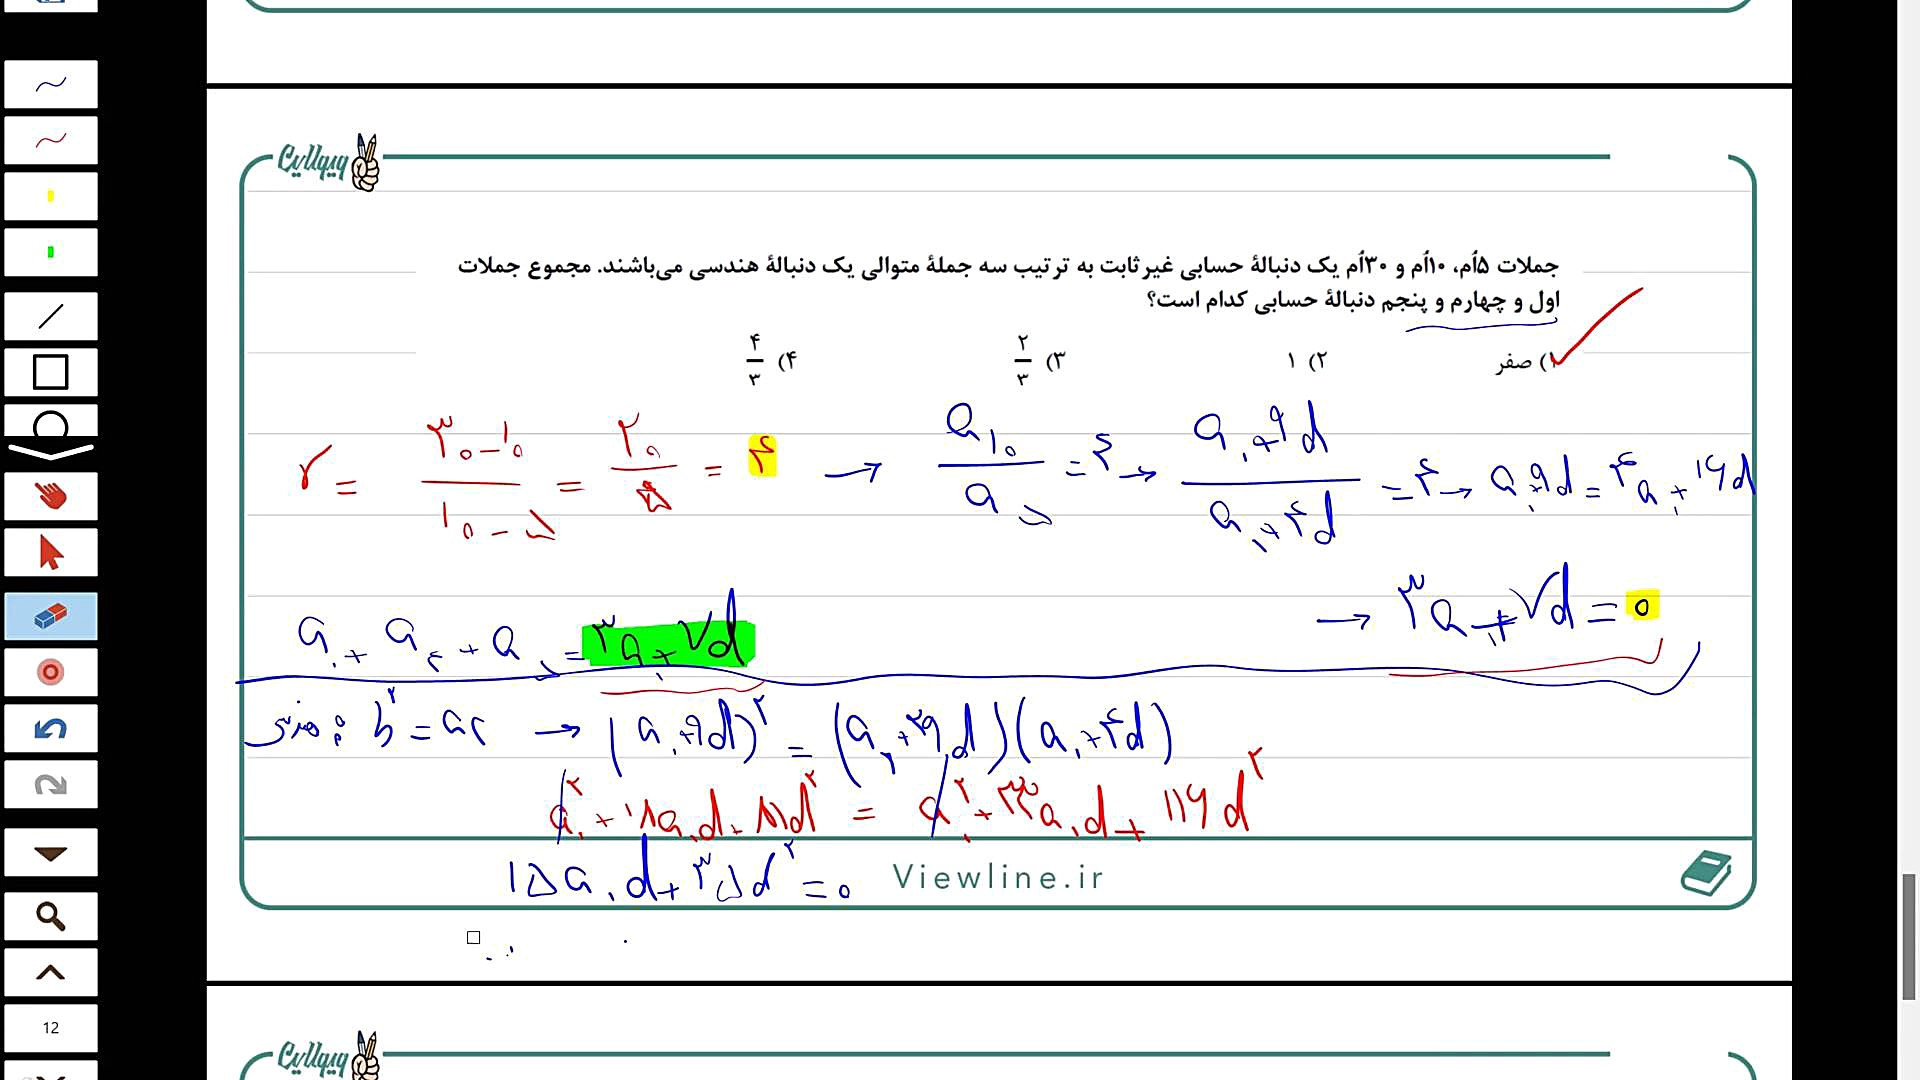 ویولاین
جملات ۵اُم، ۱۰اُم و ۳۰اُم یک دنبالهٔ حسابی غیرثابت به ترتیب سه جملهٔ متوالی یک دنبالهٔ هندسی می‌باشند. مجموع جملات
اول و چهارم و پنجم دنبالهٔ حسابی کدام است؟
۱) صفر ۲) ۱ ۳) ۲/۳ ۴) ۴/۳
r = (۳۰-۱۰)/(۱۰-۵) = ۲۰/۵ = ۴ → a۱۰/a۵ = ۴ → (a۱+۹d)/(a۱+۴d) = ۴ → a۱+۹d = ۴a۱+۱۶d
→ ۳a۱+۷d = ۰
a۱+a۴+a۵ = ۳a۱+۷d
b۲ = ac → (a۱+۹d)۲ = (a۱+۲۹d)(a۱+۴d)
a۱۲+۱۸a۱d+۸۱d۲ = a۱۲+۳۳a۱d+۱۱۶d۲
۱۵a۱d+۳۵d۲ = ۰
Viewline.ir
12
ویولاین